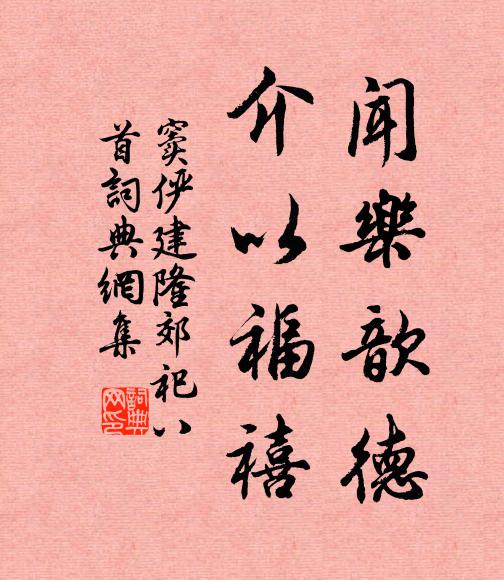 聞樂歆德
介以福禧
竇俨建隆郊祀八
首詞典網集
詞典网印